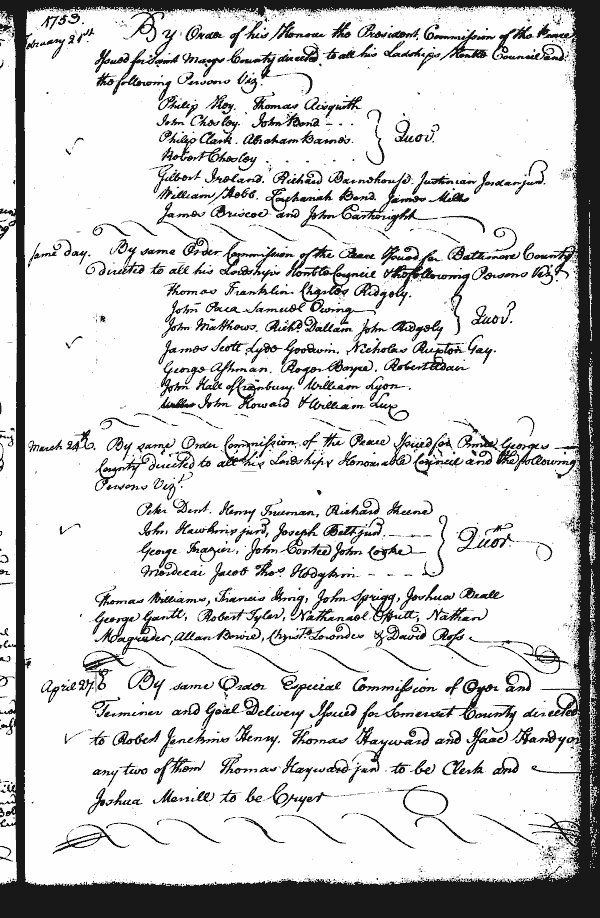 1753.
February 21st By Order of his Honour the President, Commission of the Peace
Issued for Saint Marys County directed to all his Lordships Honble Council and
the following Persons Vizt
Philip Key. Thomas Aisquith
John Chesley. John Bond
Philip Clark. Abraham Barnes. Quor.
Robert Chesley
Gilbert Ireland. Richard Barnehouse. Justinian Jordan junr.
William Hebb. Zachariah Bond. James Mills
James Briscoe and John Cartwright
same day. By same Order Commission of the Peace Issued for Baltimore County
directed to all his Lordships Honble Council & the following Persons Vizt
Thomas Franklin Charles Ridgely.
John Paca Samuel Owing
John Matthews. Richd. Dallam John Ridgely Quor.
James Scott Lyde Goodwin, Nicholas Ruxton Gay.
George Ashman. Roger Boyce. Robert Adair
John Hall of Cranbury. William Lyon.
John Howard & William Lux
March 24th. By same Order Commission of the Peace Issued for Prince Georges
County directed to all his Lordships Honourable Council and the following
Persons Vizt
Peter Dent. Henry Trueman, Richard Keene
John Hawkins junr, Joseph Belt junr.
George Frazier, John Contee John Cooke Quor
Mordecai Jacob Thos. Hodgkin
Thomas Williams, Francis King, John Sprigg, Joshua Beall
George Gantt, Robert Tyler, Nathanael Offutt, Nathan
Magruder, Allan Bowie, Christr. Lowndes & David Ross
April 27th By same Order Especial Commission of Oyer and
Terminer and Goal Delivery Issued for Somerset County directed
to Robert Jenckins Henry. Thomas Hayward and Isaac Handy or
any two of them Thomas Hayward junr. to be Clerk and
Joshua Merrill to be Cryer